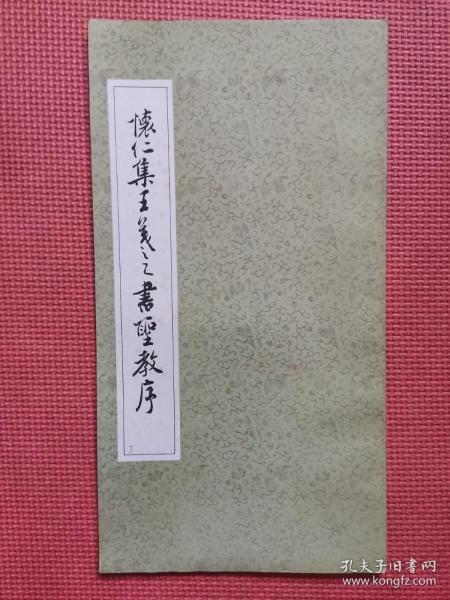 懷仁集王羲之書聖教序
3
孔夫子旧书网
www.kongfz.com